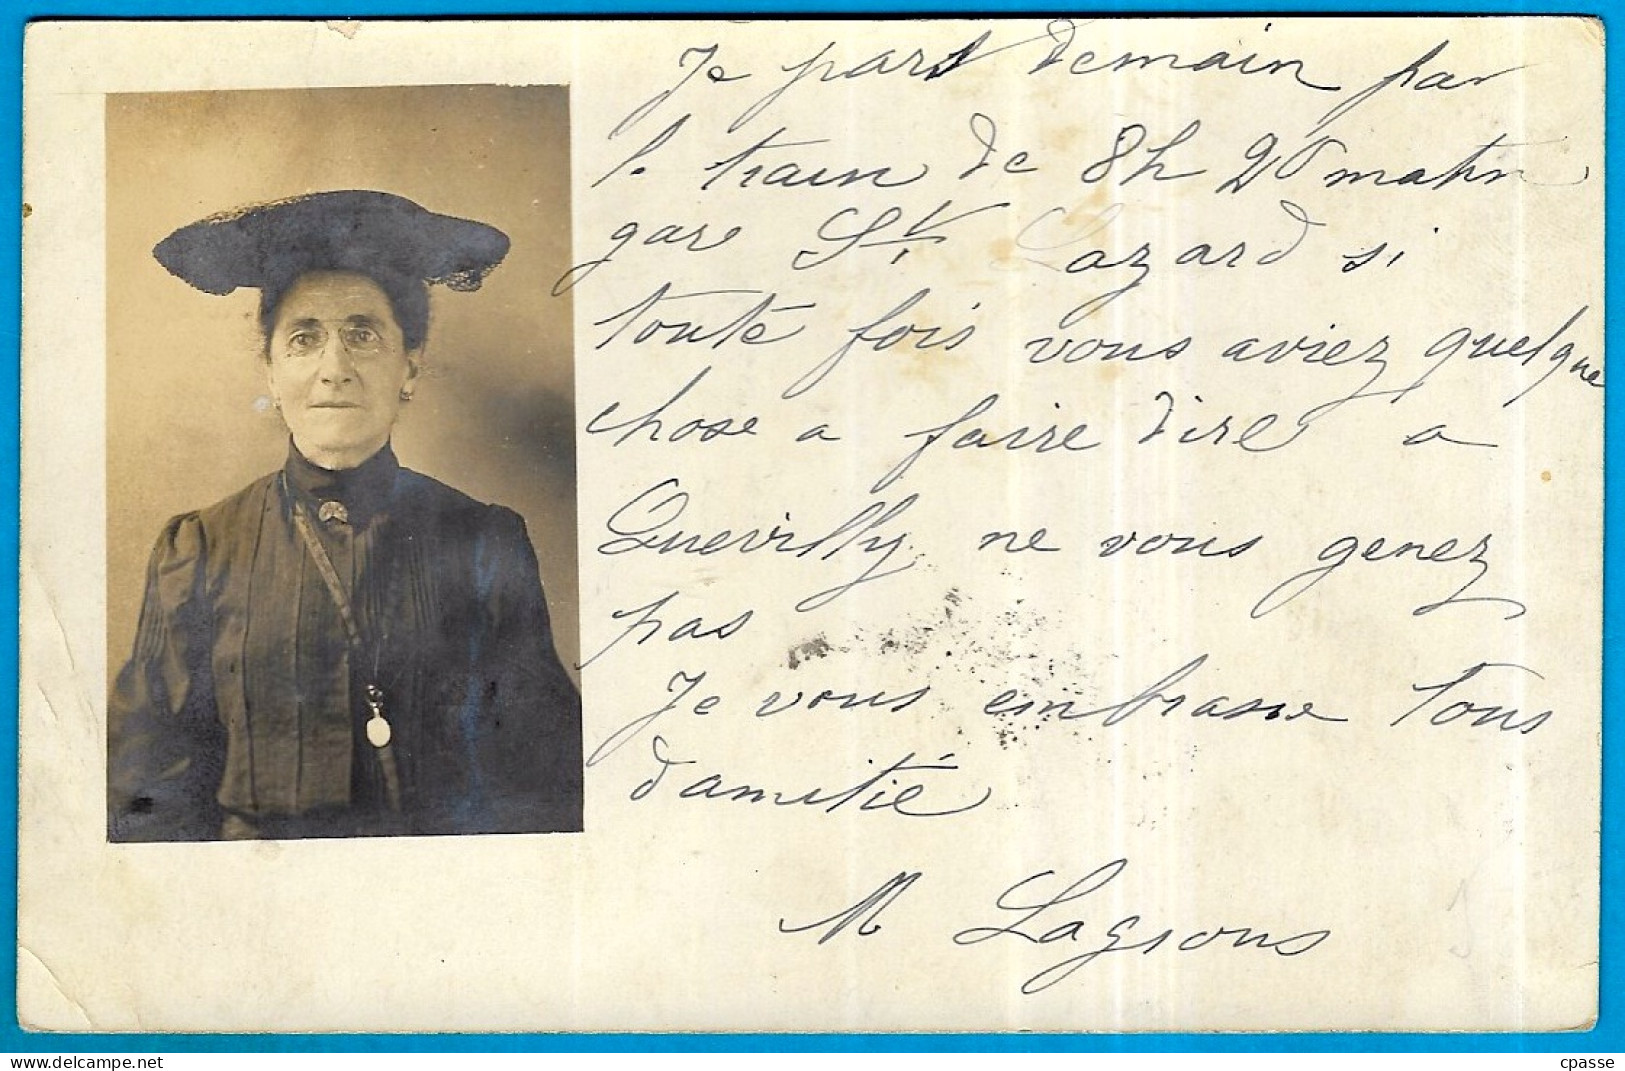 Je pars demain par
le train de 8h 20 matin
gare St Lazard si
touté fois vous aviez quelque
chose a faire dire a
Quevilly ne vous genez
pas
Je vous embrasse Tous
d'amitié
M Lagrous
cpasse